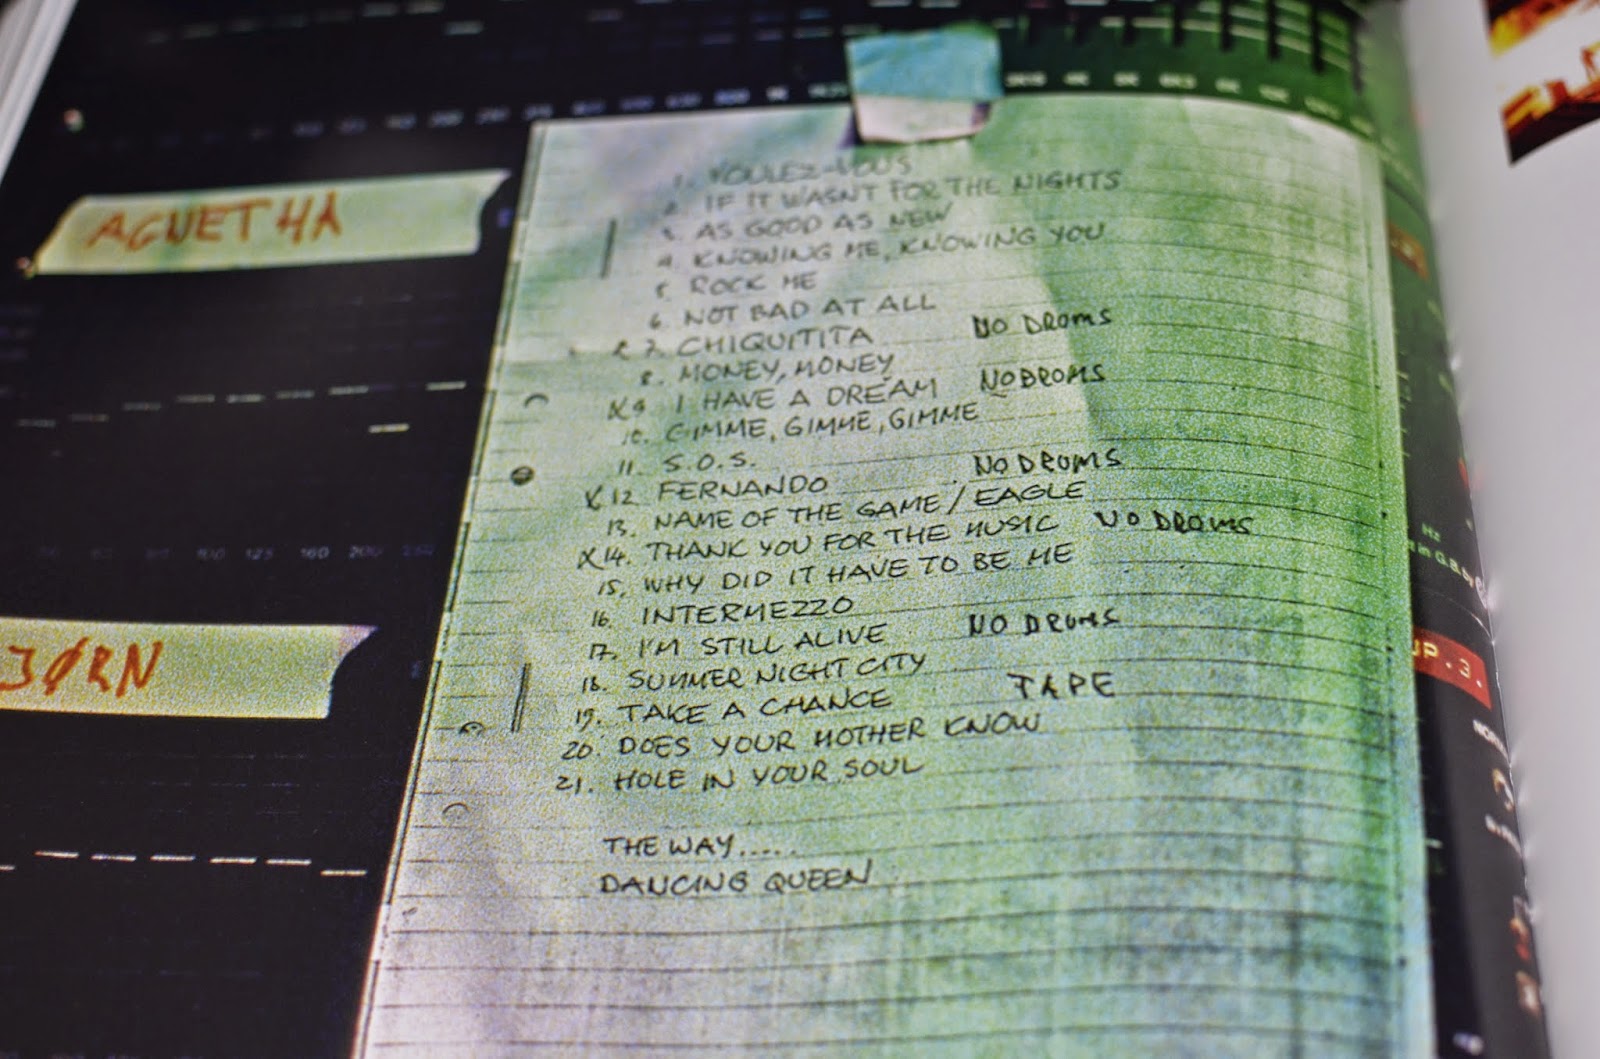 AGNETHA
JØRN
1. VOULEZ-VOUS
2. IF IT WASNT FOR THE NIGHTS
3. AS GOOD AS NEW
4. KNOWING ME, KNOWING YOU
5. ROCK ME
6. NOT BAD AT ALL
7. CHIQUITITA NO DROMS
8. MONEY, MONEY
X9 I HAVE A DREAM NO DROMS
10. GIMME, GIMME, GIMME
11. S.O.S.
X12 FERNANDO NO DRUMS
13. NAME OF THE GAME / EAGLE
X14. THANK YOU FOR THE MUSIC NO DROMS
15. WHY DID IT HAVE TO BE ME
16. INTERMEZZO
17. I'M STILL ALIVE NO DRUMS
18. SUMMER NIGHT CITY
19. TAKE A CHANCE TAPE
20. DOES YOUR MOTHER KNOW
21. HOLE IN YOUR SOUL
THE WAY.....
DANCING QUEEN
100 125 160 200
Hz
UP.3.